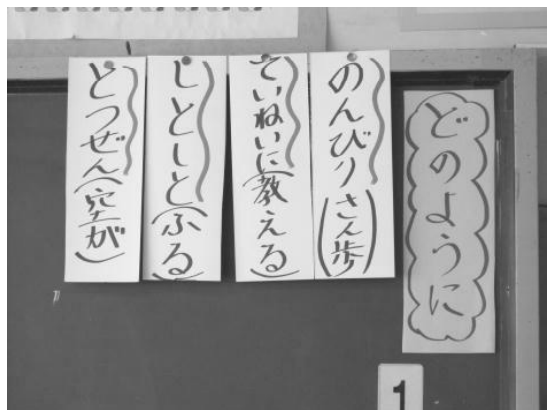 どのように
のんびり(さん歩)
ていねいに(教える)
しとしと(ふる)
とつぜん(空が)
1